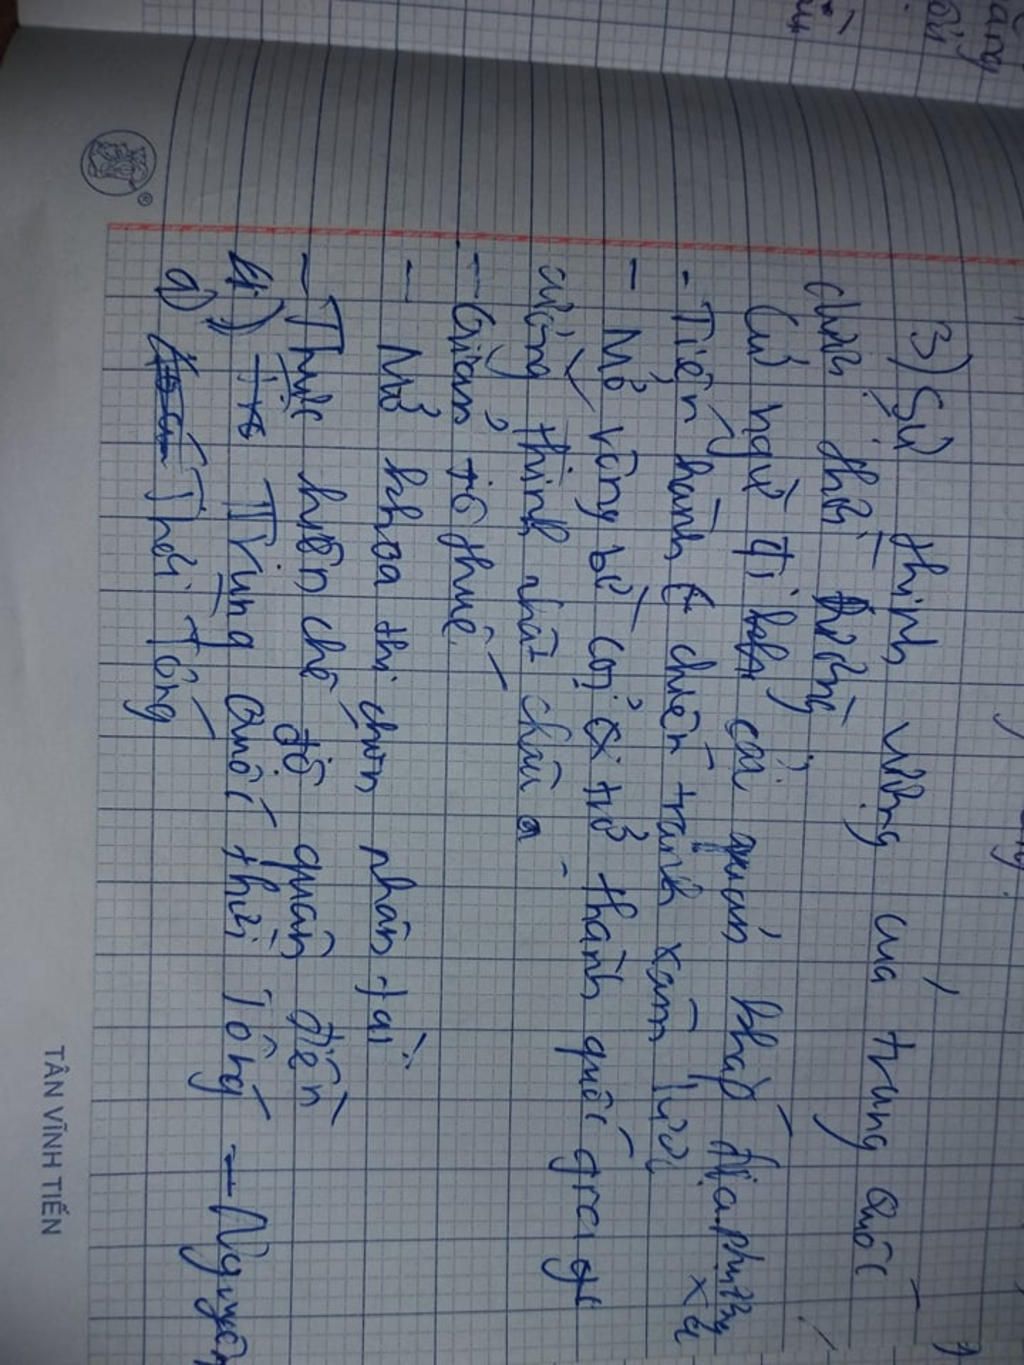 3) Sự thịnh vượng của trung Quốc
dưới thời đường
Cử người đi cai quản khắp địa phương xa
- Tiến hành chiến tranh xâm lược
- Mở rộng bờ cõi trở thành quốc gia
cường thịnh nhất châu á
- Giảm tô thuế
- Mở khoa thi chọn nhân tài
- Thực hiện chế độ quân điền
4) Trung Quốc thời Tống - Nguyên
a) Thời Tống
TÂN VĨNH TIẾN
®